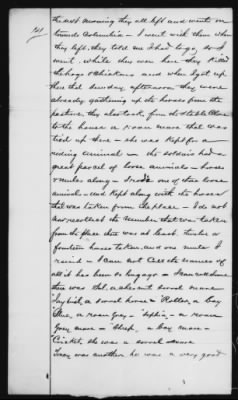 the next morning they all left and went on
towards Columbia - I went with them when
they left, they told me I had to go, so I
went. While they were here they killed
the hogs & chickens and when I got up
there that Sunday afternoon they were
already gathering up the horses from the
pasture, they also took from the stable close
to the house a roan mare that was
tied up there - she was kept for a
riding animal - the soldiers had a
great parcel of loose animals - horses
& mules along - I rode one of these loose
animals - and kept along with the horses
that was taken from the place - I do not
now recollect the number that was taken
from the place there was at least twelve or
fourteen horses taken and one mule I
- I can not call the names of
all it has been so long ago -
there was a sorrel mare
a sorrel horse - "Roller" a bay
a roan grey - a roan
Grey mare - a bay mare -
"Cricket" she was a sorrel mare
was another he was a very good